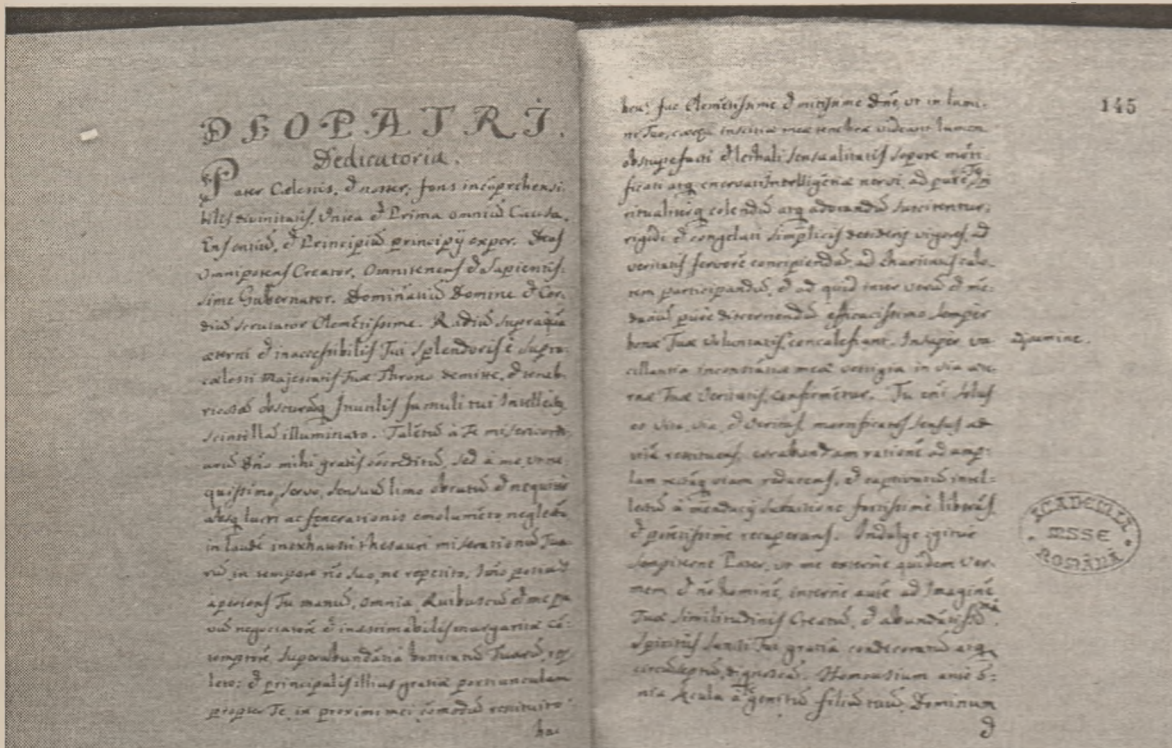 DEO PATRI.
Dedicatoria.
Pater Cœlestis, & noster, fons incōprehensi-
bilis divinitatis, Vnica & Prima omniū Causa,
Ens entiū, & Principiū principij expers. Deus
Omnipotens Creator, Omnitenens & Sapientis-
sime Gubernator. Dominātiū Domine & Cor-
diū scrutator Clemētissime. Radiū supra quā
æterni & inaccessibilis Tui splendoris è supra-
cœlesti Majestatis Tuæ Throno demitte, & teneb-
obscurāq Inutilis famuli tui Intellectus
scintillā illuminato. Talētū à Te
Dño mihi gratis cōcreditū, sed à me
quissimo, servo, sensuū limo obrutū &
absq lucri ac fenerationis emolumēto neglectū
in laudē inexhausti thesauri miserationū Tua-
rū, in tempore nō suo, ne repetito, Imò potius
aperiens Tu manū, omnia, Quibuscū & me
negociatorē & inæstimabilis margaritæ cō-
temptorē, superabundātia bonitatū Tuarū, re-
pleto: & principalis illius gratiæ portiunculam
propter Te, in proximi mei cōmodū restituito
ha-
beri fac Clemētissime & mitissime Dñe, vt in lumi-
ne Tuo, cæcæ inscitiæ meæ tenebræ videant lumen
obstupefacti & lethali sensualitatis sopore morti-
ficati atq enervati Intelligentiæ nervi, ad purè, spi-
ritualiterq colendū atq adorandū suscitentur,
rigidi & congelati simplicis desiderij vigores, ad
veritatis fervorē concipiendū, ad Charitatis calo-
rem participandū, & ad quid inter verū & mē-
daciū purè discernendū efficacissimo semper
bonæ Tuæ Voluntatis, concalefiant. Insuper va-
cillantia incōstātiæ meæ vestigia in via æter-
næ Tuæ Veritatis, confirmētur. Tu eni solus
es vita, via, & veritas, mortificatos sensus ad
vitā restituens, errabundam rationē ad amp-
lam rectāq viam reducens, & captivatū intel-
lectū à mēdacij fortissimè liberās
& potētissimè recuperans. Indulge igitur
Sempiterne Pater, vt me externè quidem Ver-
mem & nō hominē, internè autē ad Imaginē
Tuæ similitudinis Creatū, & abundātissima
Spiritus Sancti Tui gratia condecoratū atq
dignoscā. Homousium ante o-
nia sæcula à Te genitū filiū tuū, Dominum
&
145
ACADEMIA
MSSE
ROMÂNĂ